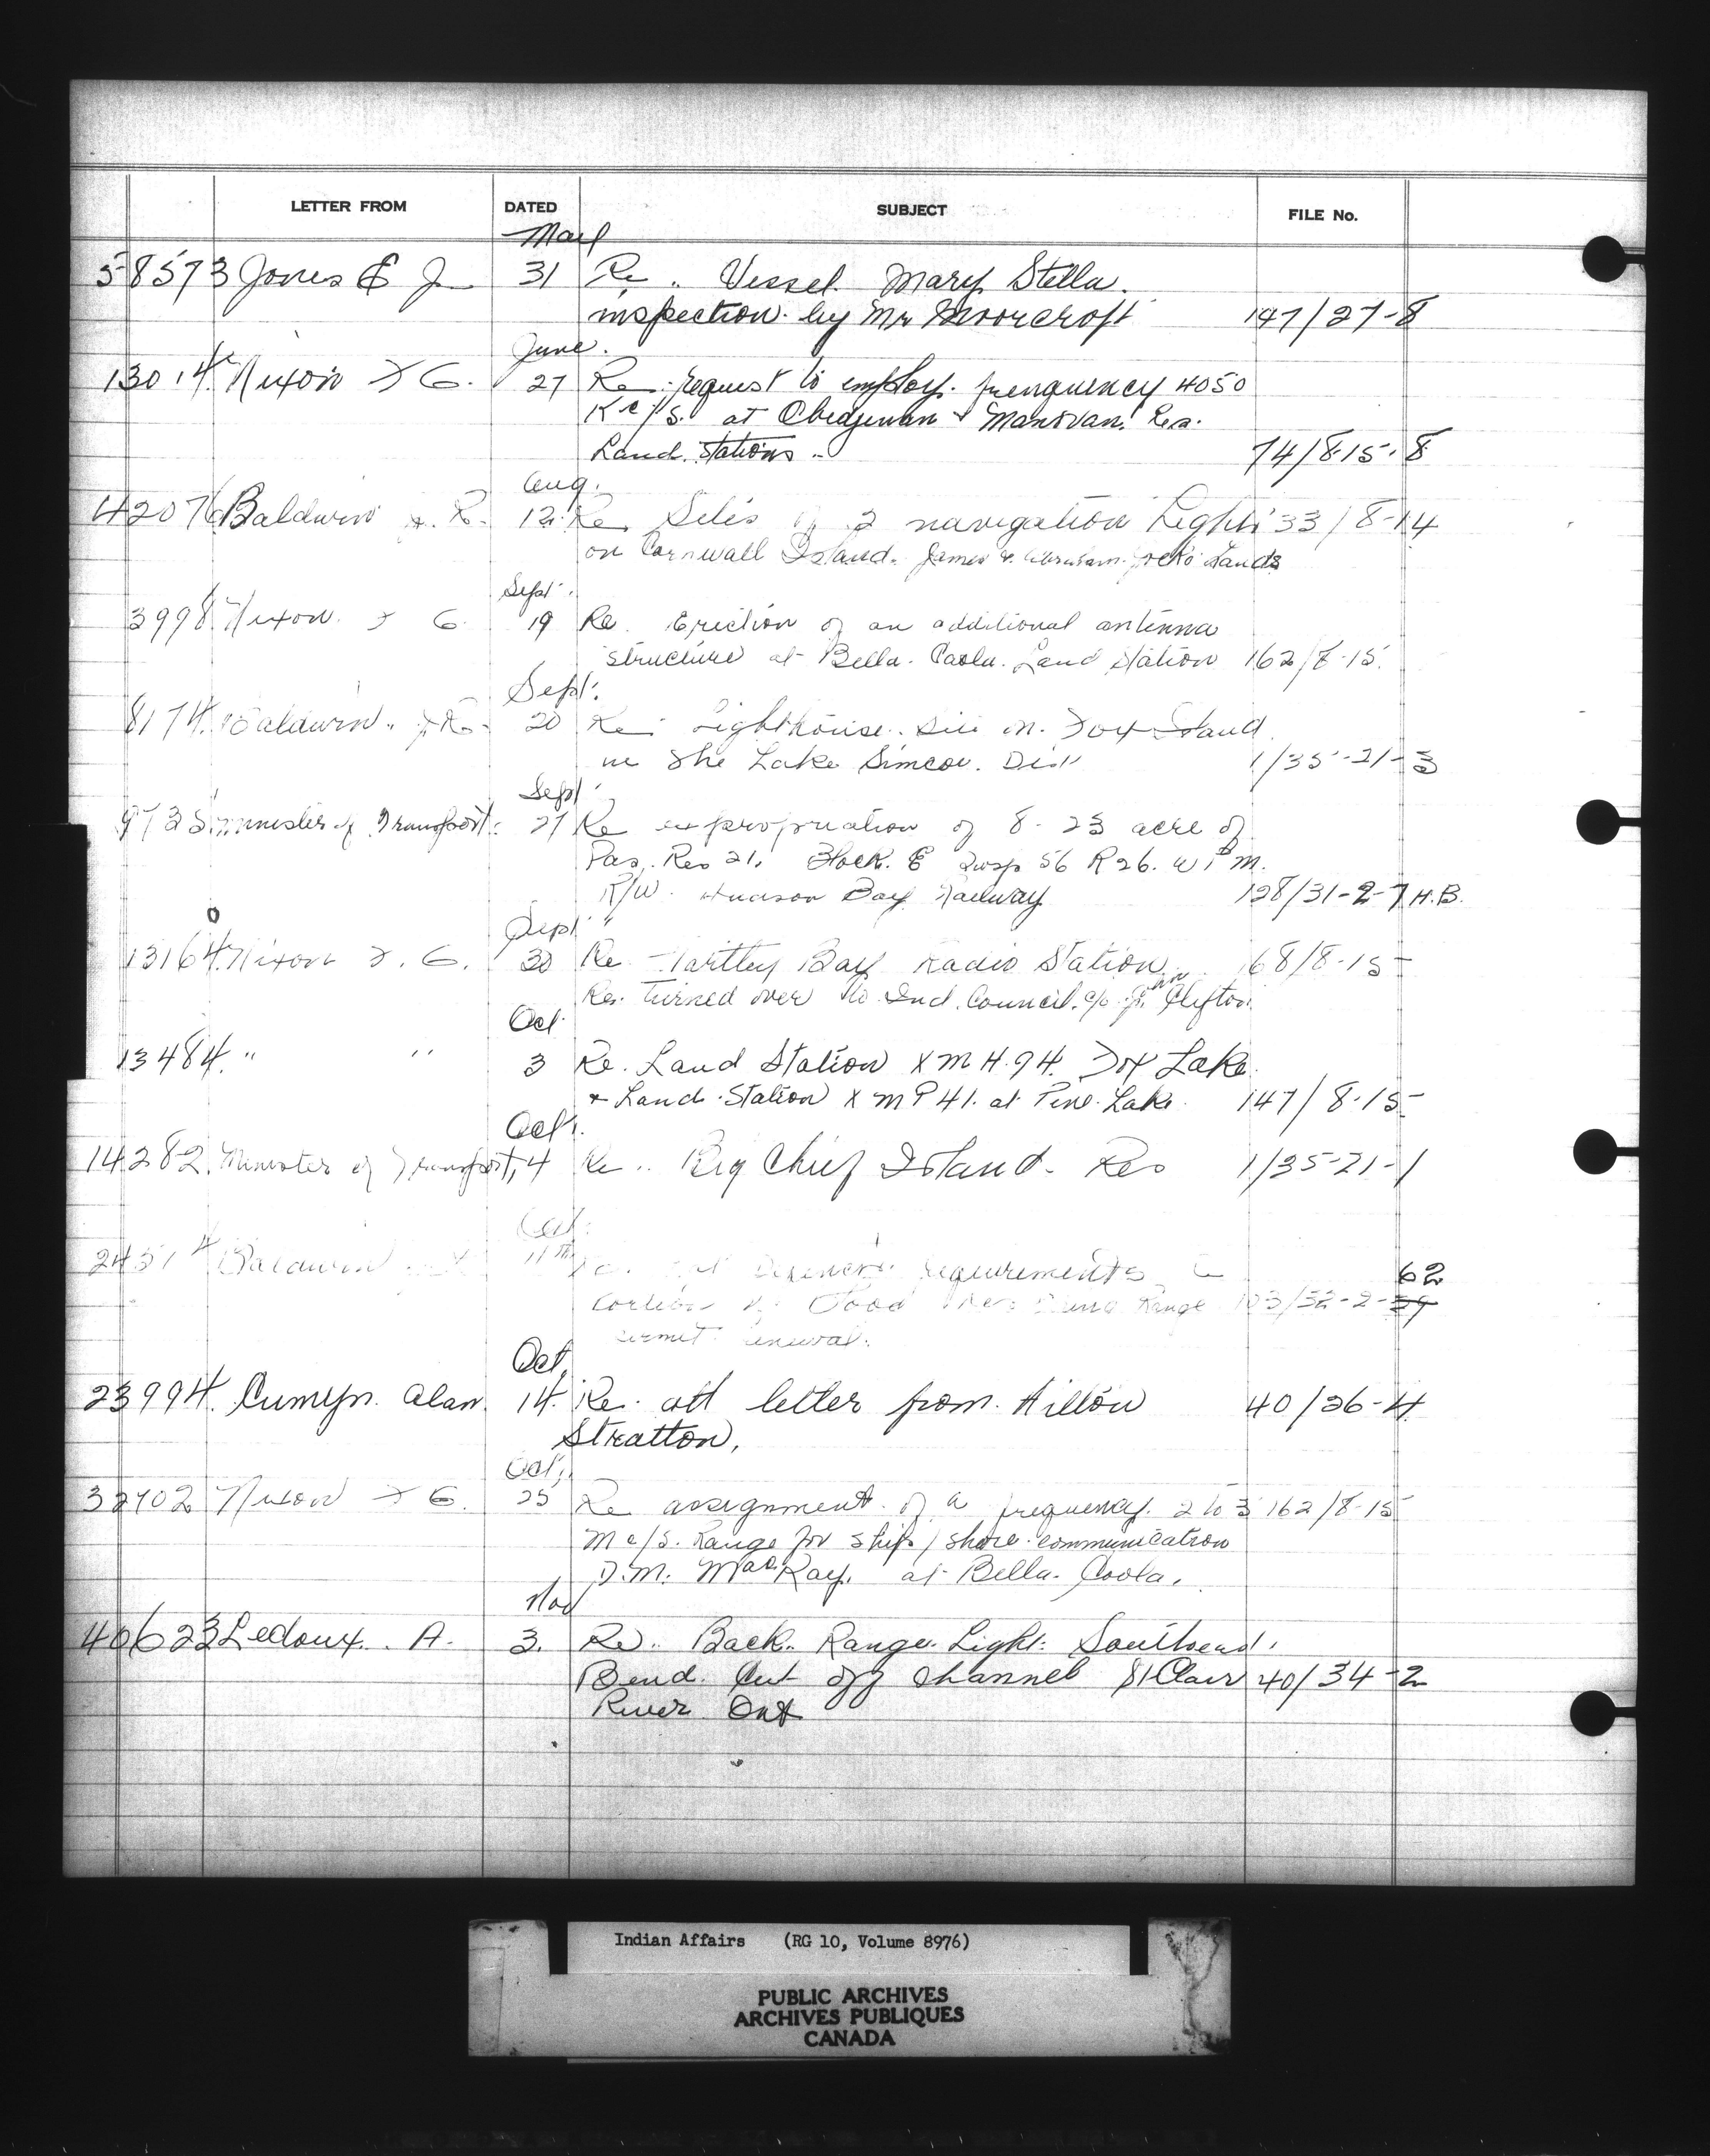 LETTER FROM DATED SUBJECT FILE No.
58573 Jones E J 31 Re. Vessel Mary Stella.
inspection by Mr Moorcroft 147/27-8
June.
13014 Nixon F G. 27 Re. request to employ frenquency 4050
Kc/s. at & Res.
Land. Stations. 74/8-15-8
Aug.
42076 Baldwin J. R. 12 Re Sites of 2 navigation Lights 33/8-14
on Cornwall Island. James & Lands
Sept.
3998 Nixon F G 19 Re Erection of an additional antenna
structure at Bella Coola Land Station 162/8-15.
Sept.
8174 Baldwin J R. 20 Re Lighthouse Site on Fox Island
in the Lake Simcoe. Dist 1/35-21-3
Sept
9735 minister of Transport. 27 Re expropriation of 8-23 acre of
Pas. Res 21. Block. E Twsp 56 R 26. W 1st M.
R/W. Hudson Bay Railway 128/31-2-7 H.B.
Sept
13164 Nixon F. G. 30 Re Hartley Bay Radio Station 168/8-15
Res. turned over to Ind. Council. c/o John Clifton.
Oct
13484. " " 3 Re. Land Station XMH.94. Fox Lake
& Land Station XMP41. at Pine Lake. 147/8-15
Oct.
14282. Minister of Transport, 4 Re. Big Chief Island Res 1/35-21-1
Oct.
Baldwin 11th requirements
62
of Blood Range 103/32-2-39
permit renewal.
Oct,
23994. Cumyn. Alan. 14. Re. att letter from. Hilton 40/36-4
Stratton,
Oct,
32702 Nixon F G. 25 Re assignment of a frequency. 2 to 3 162/8-15
Mc/s. Range for ship/shore communication
D.M. MacKay, at Bella Coola.
Nov
40623 Ledoux. A. 3. Re. Back Range Light Southeast.
Bend Cut off Channel St Clair 40/34-2
River Ont
Indian Affairs (RG 10, Volume 8976)
PUBLIC ARCHIVES
ARCHIVES PUBLIQUES
CANADA